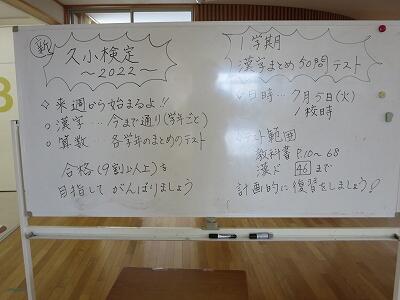 新
久小検定
～2022～
◇来週から始まるよ!!
○漢字…今まで通り(学年ごと)
○算数…各学年のまとめのテスト
合格(9割以上)を
目指してがんばりましょう
1学期
漢字まとめ50問テスト
◇日時…7月5日(火)
1校時
テスト範囲
教科書P.10～68
漢ド 46 まで
計画的に復習をしましょう!